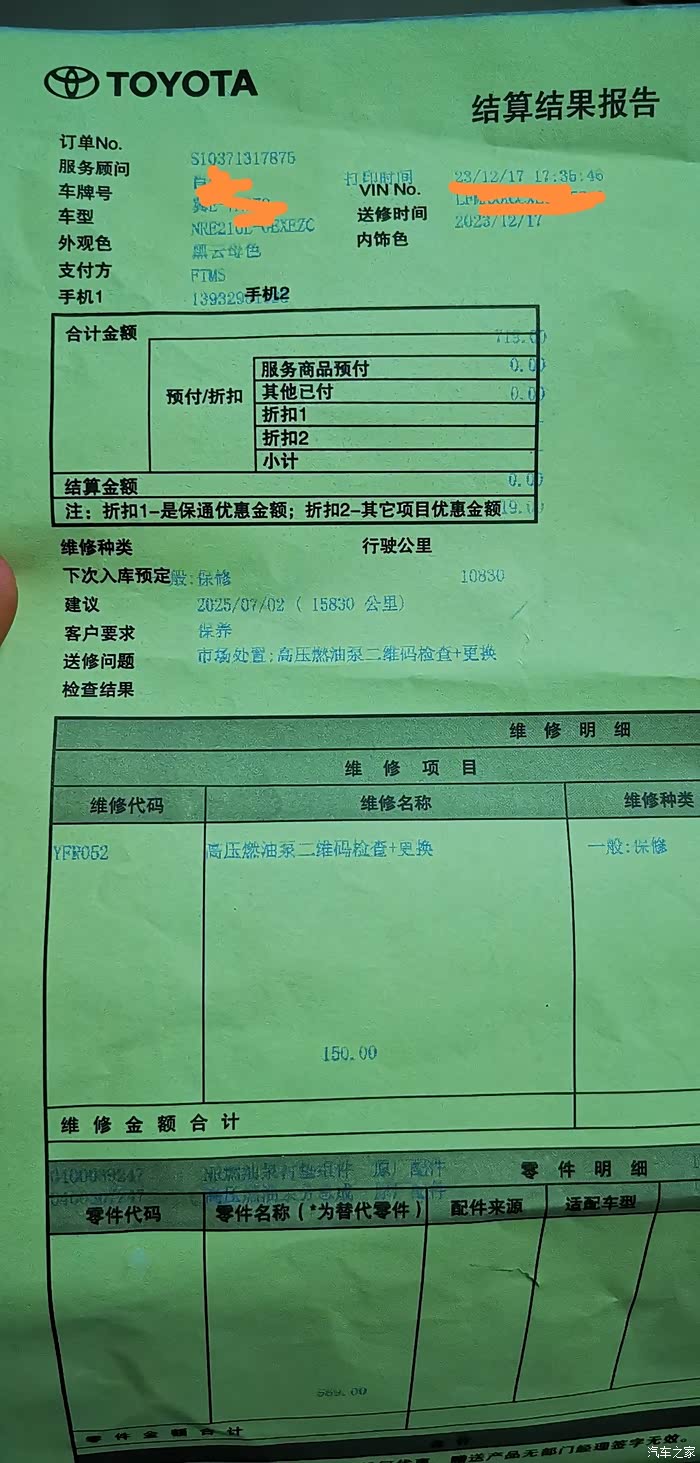 TOYOTA
结算结果报告
订单No. S10371317875
服务顾问 打印时间 23/12/17 17:35:46
车牌号 VIN No.
车型 送修时间 2023/12/17
外观色 黑云母色 内饰色
支付方 FTMS
手机1 手机2
合计金额
服务商品预付 0.00
预付/折扣 其他已付 0.00
折扣1
折扣2
小计
结算金额 0.00
注：折扣1-是保通优惠金额；折扣2-其它项目优惠金额
维修种类 行驶公里
下次入库预定 般:保修 10830
建议 2025/07/02 ( 15830 公里)
客户要求 保养
送修问题 市场处置;高压燃油泵二维码检查+更换
检查结果
维修明细
维修项目
维修代码 维修名称 维修种类
YFR052 高压燃油泵二维码检查+更换 一般:保修
150.00
维修金额合计
零件明细
零件代码 零件名称（*为替代零件） 配件来源 适配车型
569.00
零件金额合计
送产品无部门经理签字无效。
汽车之家